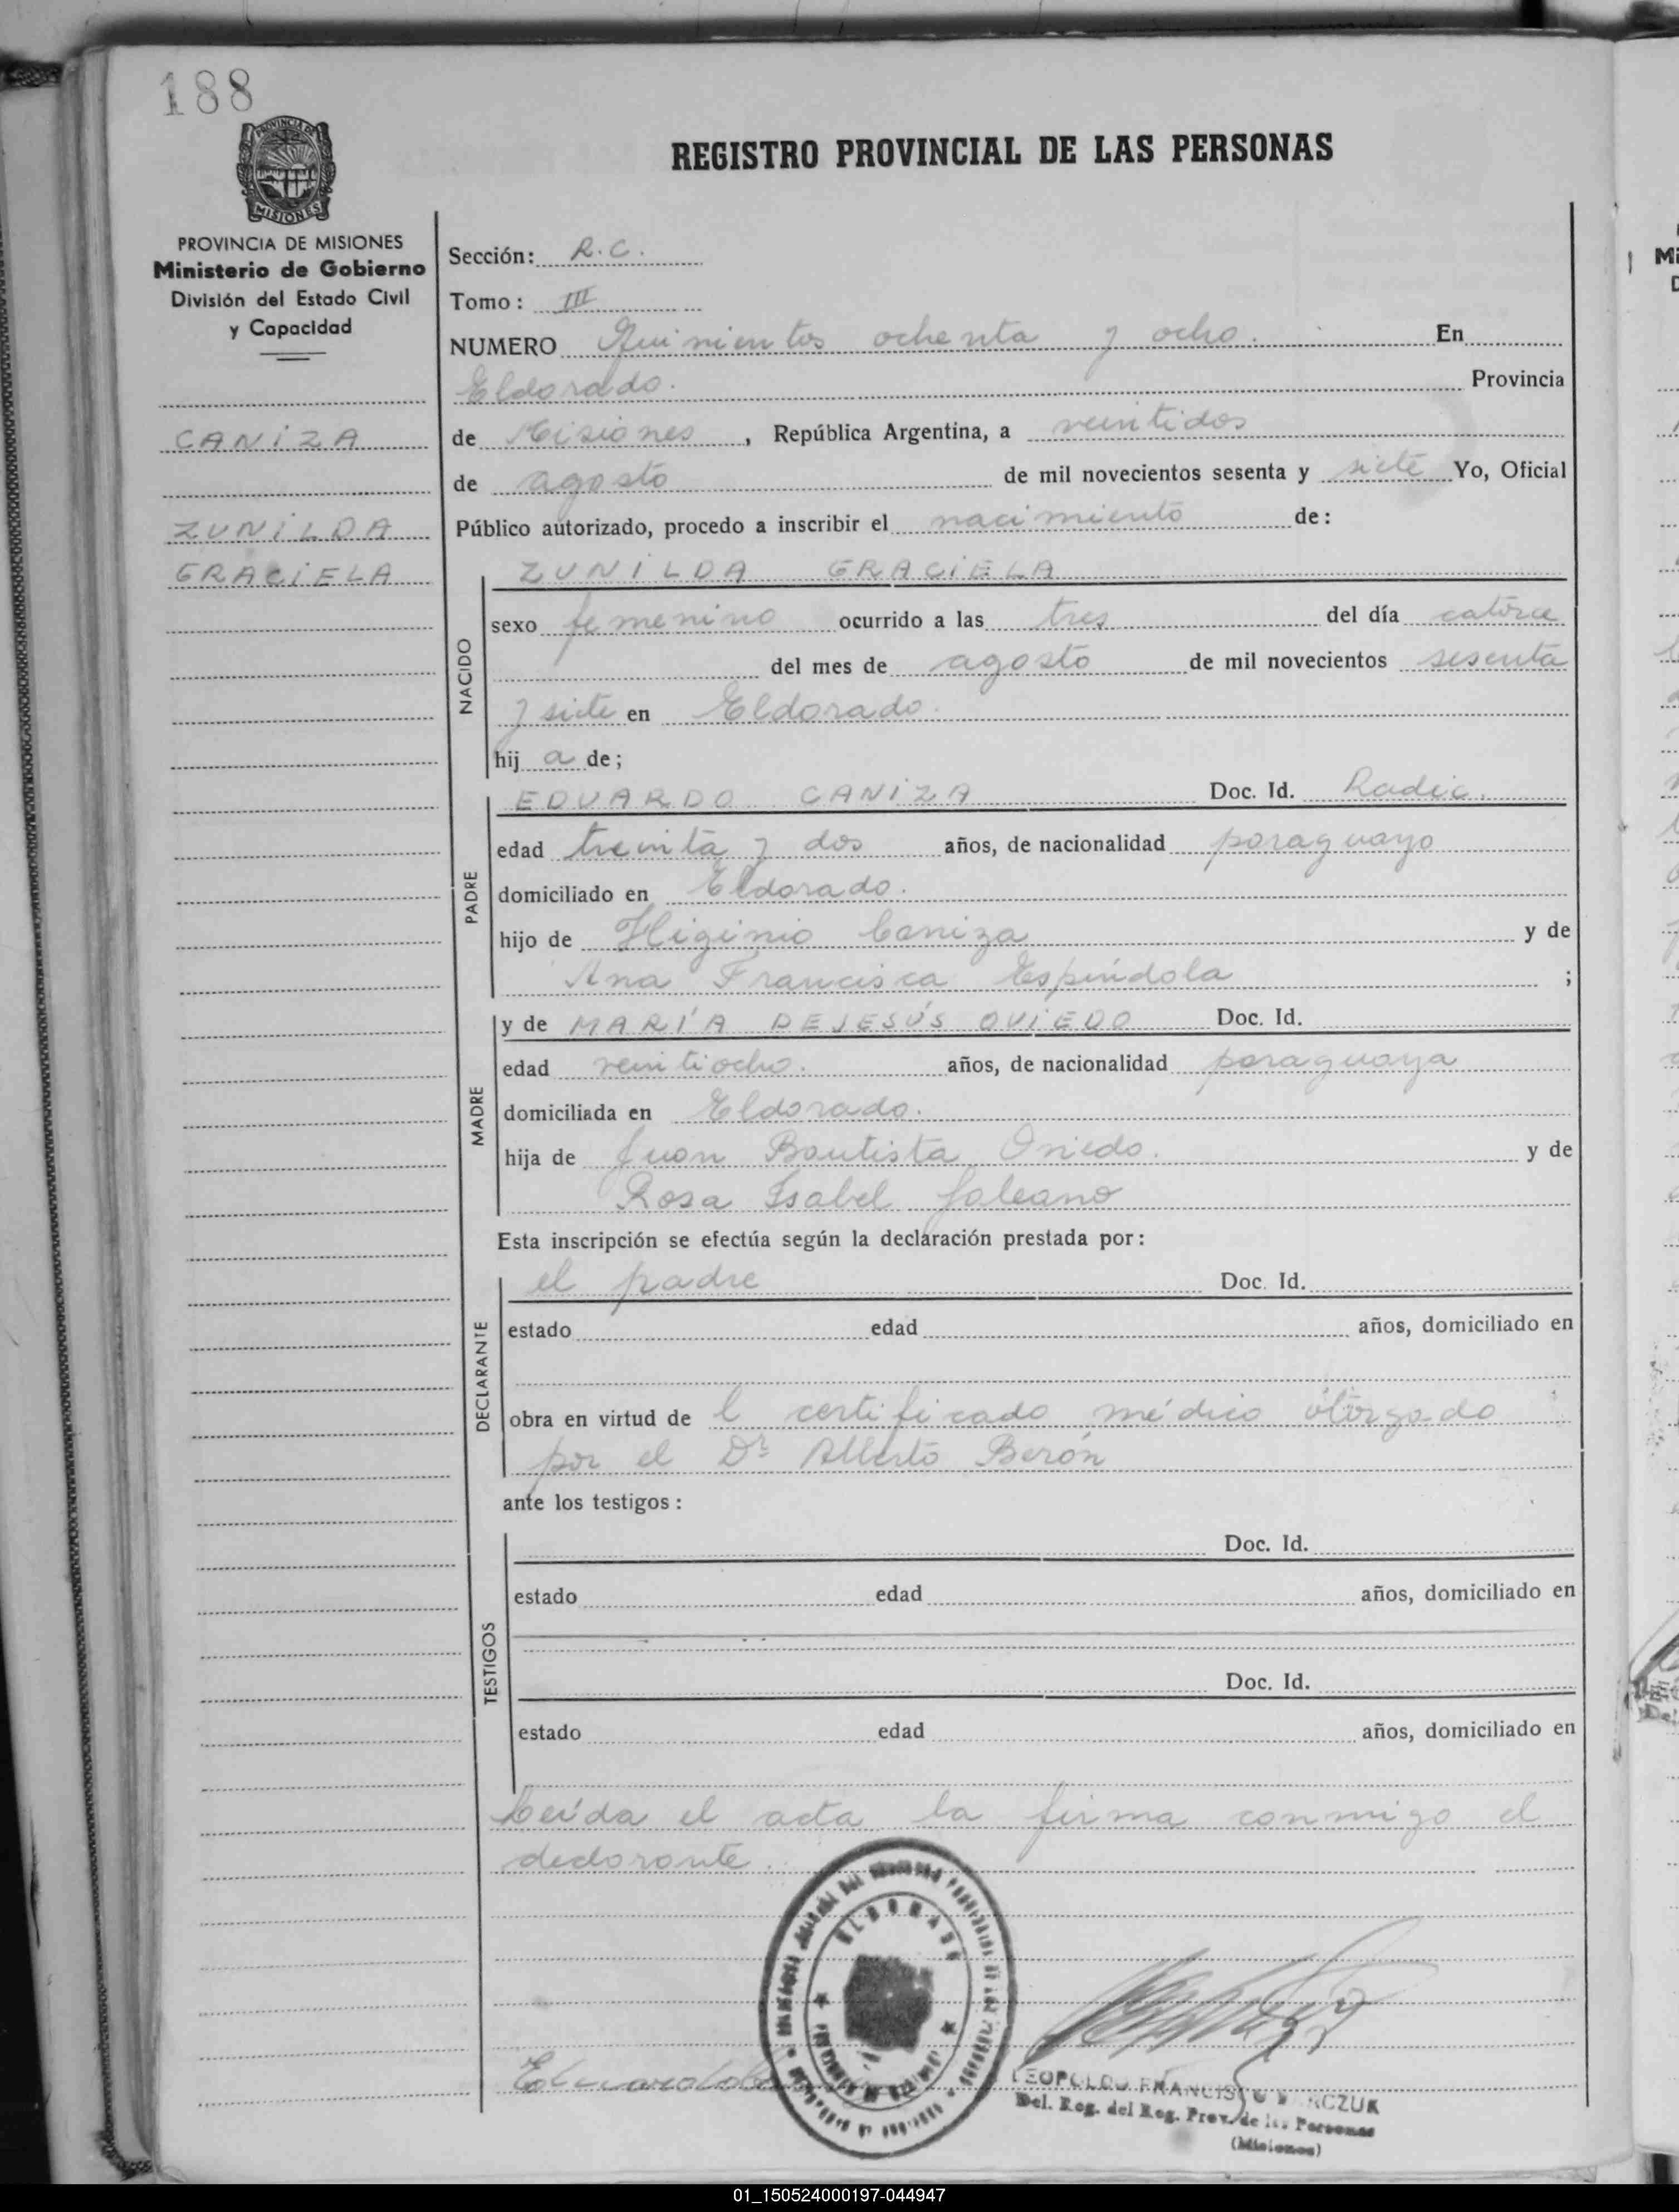 188
REGISTRO PROVINCIAL DE LAS PERSONAS
PROVINCIA DE MISIONES
PROVINCIA DE MISIONES
Ministerio de Gobierno
División del Estado Civil
y Capacidad
CANIZA
ZUNILDA
GRACIELA
Sección: R.C.
Tomo: III
NUMERO Quinientos ochenta y ocho. En
Eldorado. Provincia
de Misiones, República Argentina, a veintidos
de agosto de mil novecientos sesenta y siete Yo, Oficial
Público autorizado, procedo a inscribir el nacimiento de:
NACIDO
ZUNILDA GRACIELA
sexo femenino ocurrido a las tres del día catorce
del mes de agosto de mil novecientos sesenta
y siete en Eldorado.
hij a de;
PADRE
EDUARDO CANIZA Doc. Id. Radic.
edad treinta y dos años, de nacionalidad paraguayo
domiciliado en Eldorado.
hijo de Higinio Caniza y de
Ana Francisca Espíndola ;
MADRE
y de MARÍA DEJESÚS OVIEDO Doc. Id.
edad veintiocho. años, de nacionalidad paraguaya
domiciliada en Eldorado.
hija de Juan Bautista Oviedo. y de
Rosa Isabel Galeano
Esta inscripción se efectúa según la declaración prestada por:
DECLARANTE
el padre Doc. Id.
estado edad años, domiciliado en
obra en virtud de l certificado médico otorgado
por el Dr Alberto Berón
ante los testigos:
TESTIGOS
Doc. Id.
estado edad años, domiciliado en
Doc. Id.
estado edad años, domiciliado en
Leída el acta la firma conmigo el
declarante.
ELDORADO
Eduardo
LEOPOLDO FRANCISCO
Del. Reg. del Reg. Prov. de las Personas
(Misiones)
01_150524000197-044947